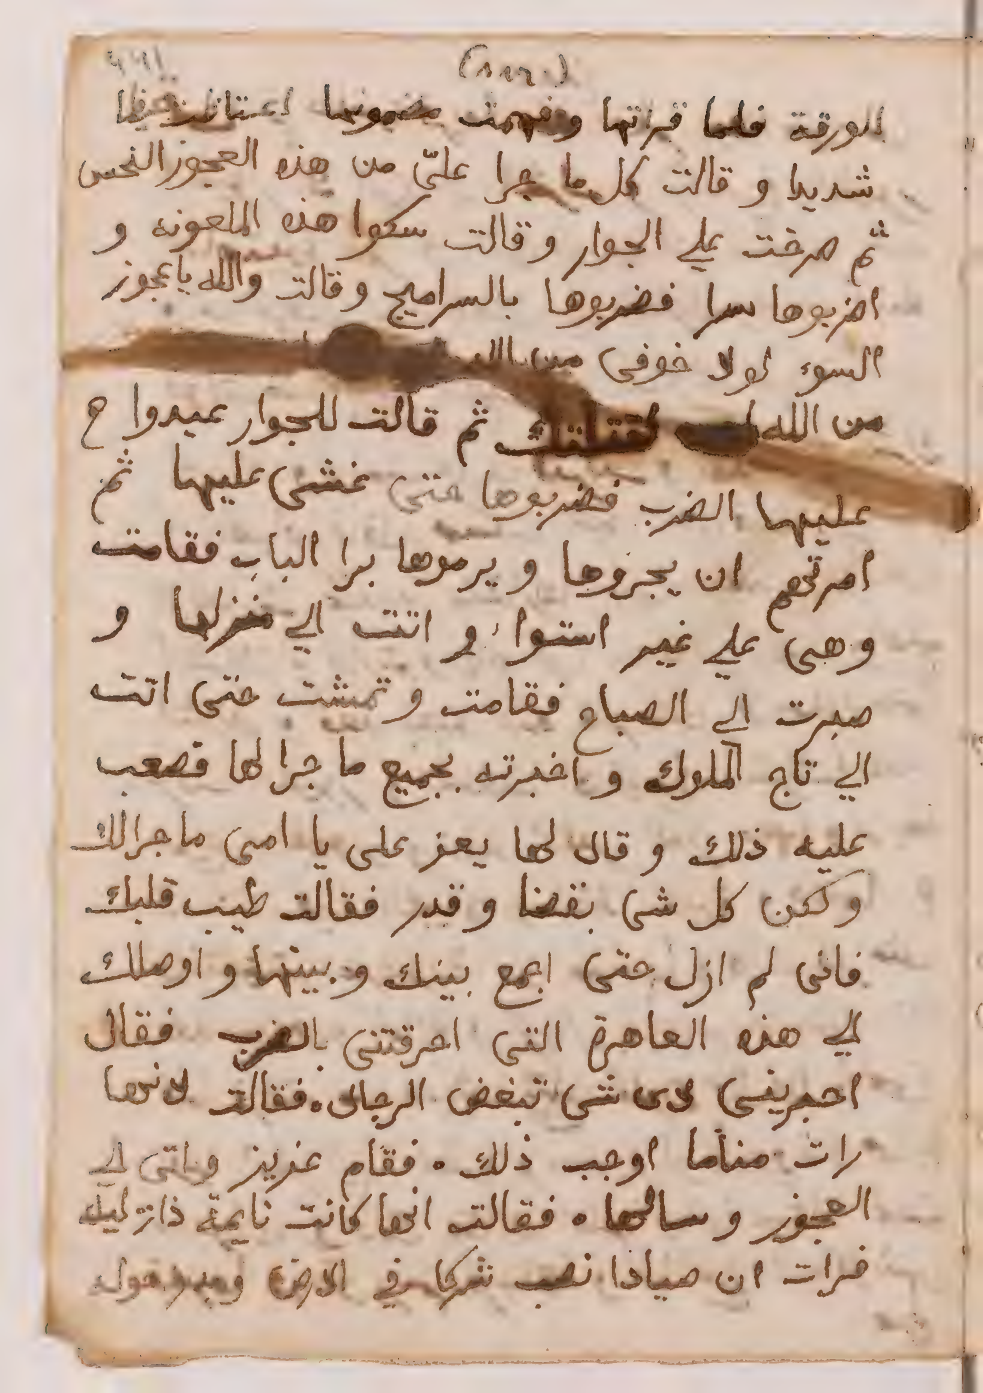 الورقة فلما قراتها وفهمت مضمونها اغتاظت غيظا
شديدا و قالت كل ما جرا عليّ من هذه العجوز النحس
ثم صرخت علي الجوار و قالت سكوا هذه الملعونه و
اضربوها سرا فضربوها بالسراميج وقالت والله يا عجوز
السوء لولا خوفي من
من الله لقتلتك ثم قالت للجوار عيدوا ح
عليها الضرب فضربوها حتى غشى عليها ثم
امرتهم ان يجروها و يرموها برا الباب فقامت
وهى علي غير استوا و اتت الي منزلها و
صبرت الي الصباح فقامت و تمشت حتى اتت
الي تاج الملوك و اخبرته بجميع ما جرا لها فصعب
عليه ذلك و قال لها يعز على يا امى ما جرالك
و لكن كل شى بقضا و قدر فقالت طيب قلبك
فانى لم ازل حتى اجمع بينك و بينها و اوصلك
الي هذه العاهرة التى احرقتنى بالضرب فقال
اخبرينى لاى شى تبغض الرجال. فقالت لانها
رات مناما اوجب ذلك. فقام عزيز و اتى الي
العجوز و سالها. فقالت انها كانت نايمة ذات ليله
فرات ان صيادا نصب شركا في الارض